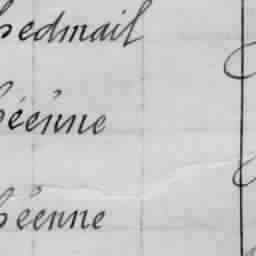 hedmail
héenne
héenne